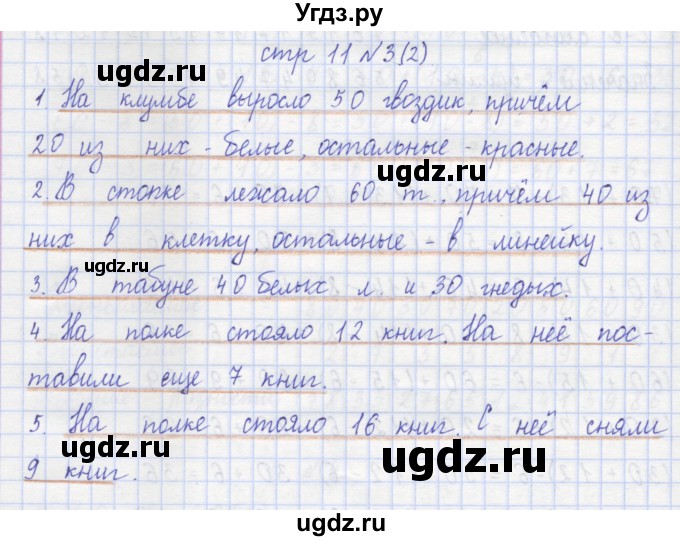 Угдз.ру
стр 11 №3(2)
ugdz.ru
ugdz.ru
1. На клумбе выросло 50 гвоздик, причём
20 из них - белые, остальные - красные.
ugdz.ru
2. В стопке лежало 60 т., причём 40 из
них в клетку, остальные - в линейку.
ugdz.ru
3. В табуне 40 белых л. и 30 гнедых.
4. На полке стояло 12 книг. На неё пос-
тавили еще 7 книг.
ugdz.ru
5. На полке стояло 16 книг. С неё сняли
ugdz.ru
9 книг.
ugdz.ru
ugdz.ru